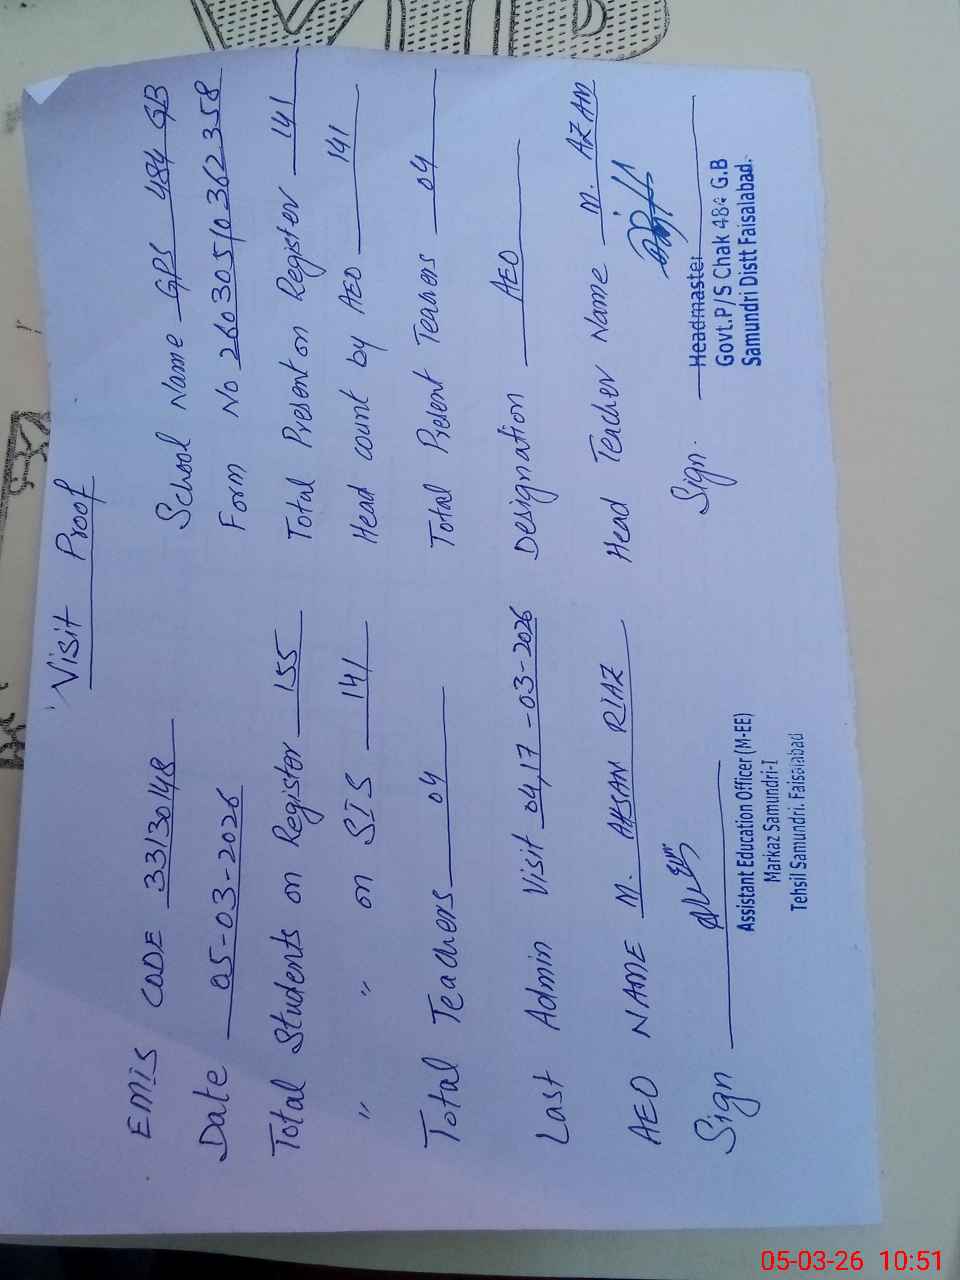 Visit Proof
EMIS CODE 33130148 School Name GPS 484 GB
Date 05-03-2026 Form No 26030510362358
Total Students on Register 155 Total Present on Register 141
" " on SIS 141 Head count by AEO 141
Total Teachers 04 Total Present Teachers 04
Last Admin Visit 04,17-03-2026 Designation AEO
AEO NAME M. AHSAN RIAZ Head Teacher Name M. AZAM
Sign Sign.
Assistant Education Officer (M-EE)
Markaz Samundri-I
Tehsil Samundri. Faisalabad
Headmaster
Govt.P/S Chak 484 G.B
Samundri Distt Faisalabad.
05-03-26 10:51